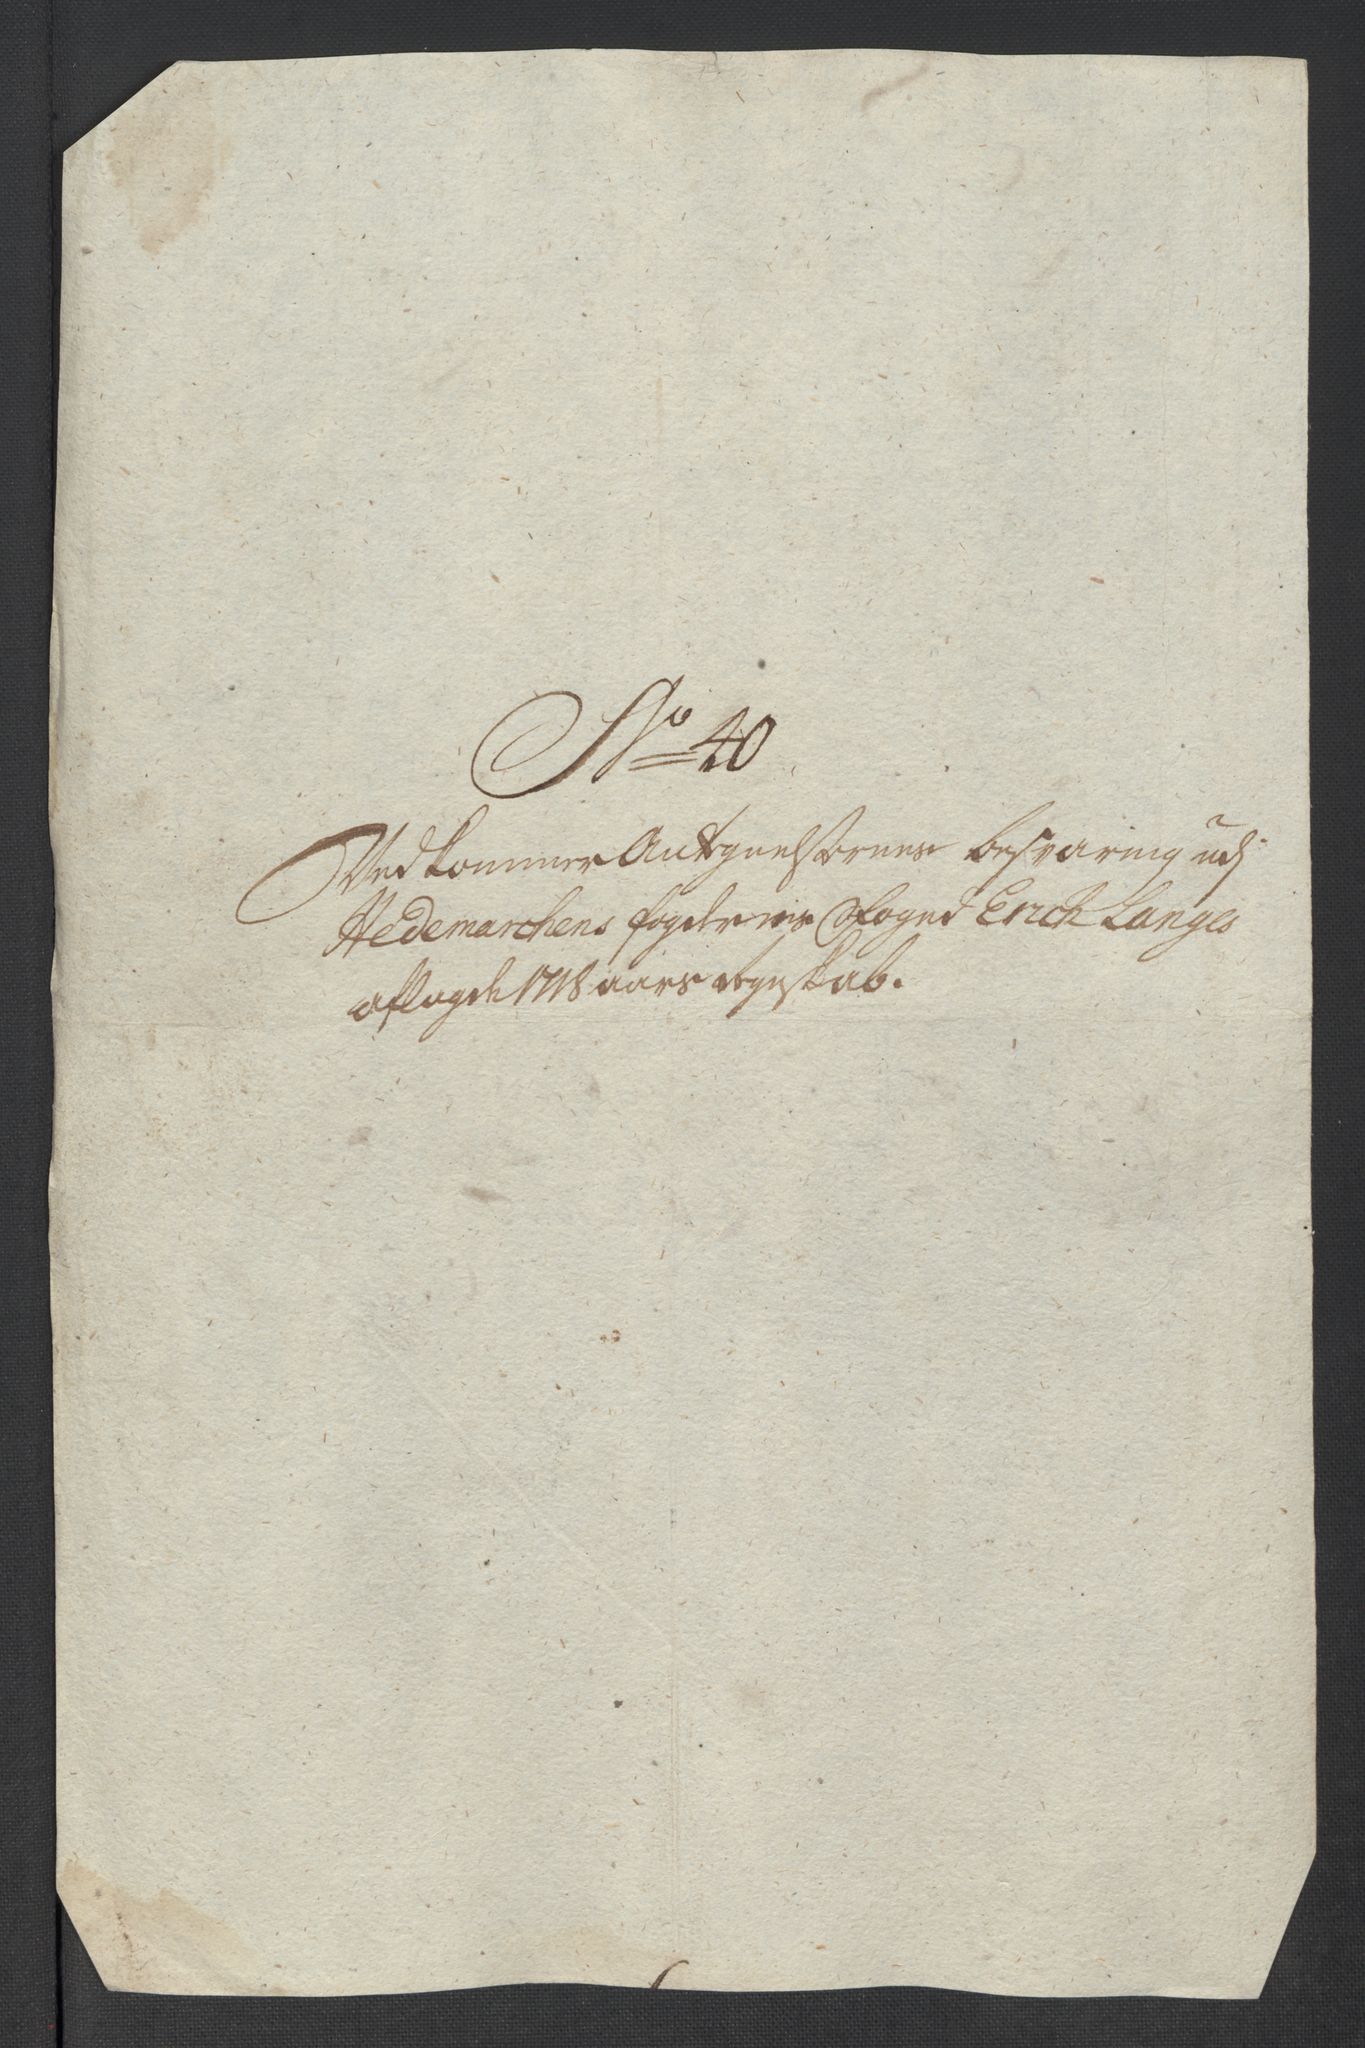 No 40
Vedkommer Antegnelsernes besvaring udj
Hedemarchens fogderie Foged Erich Langes
aflagde 1718 aars regnskab.